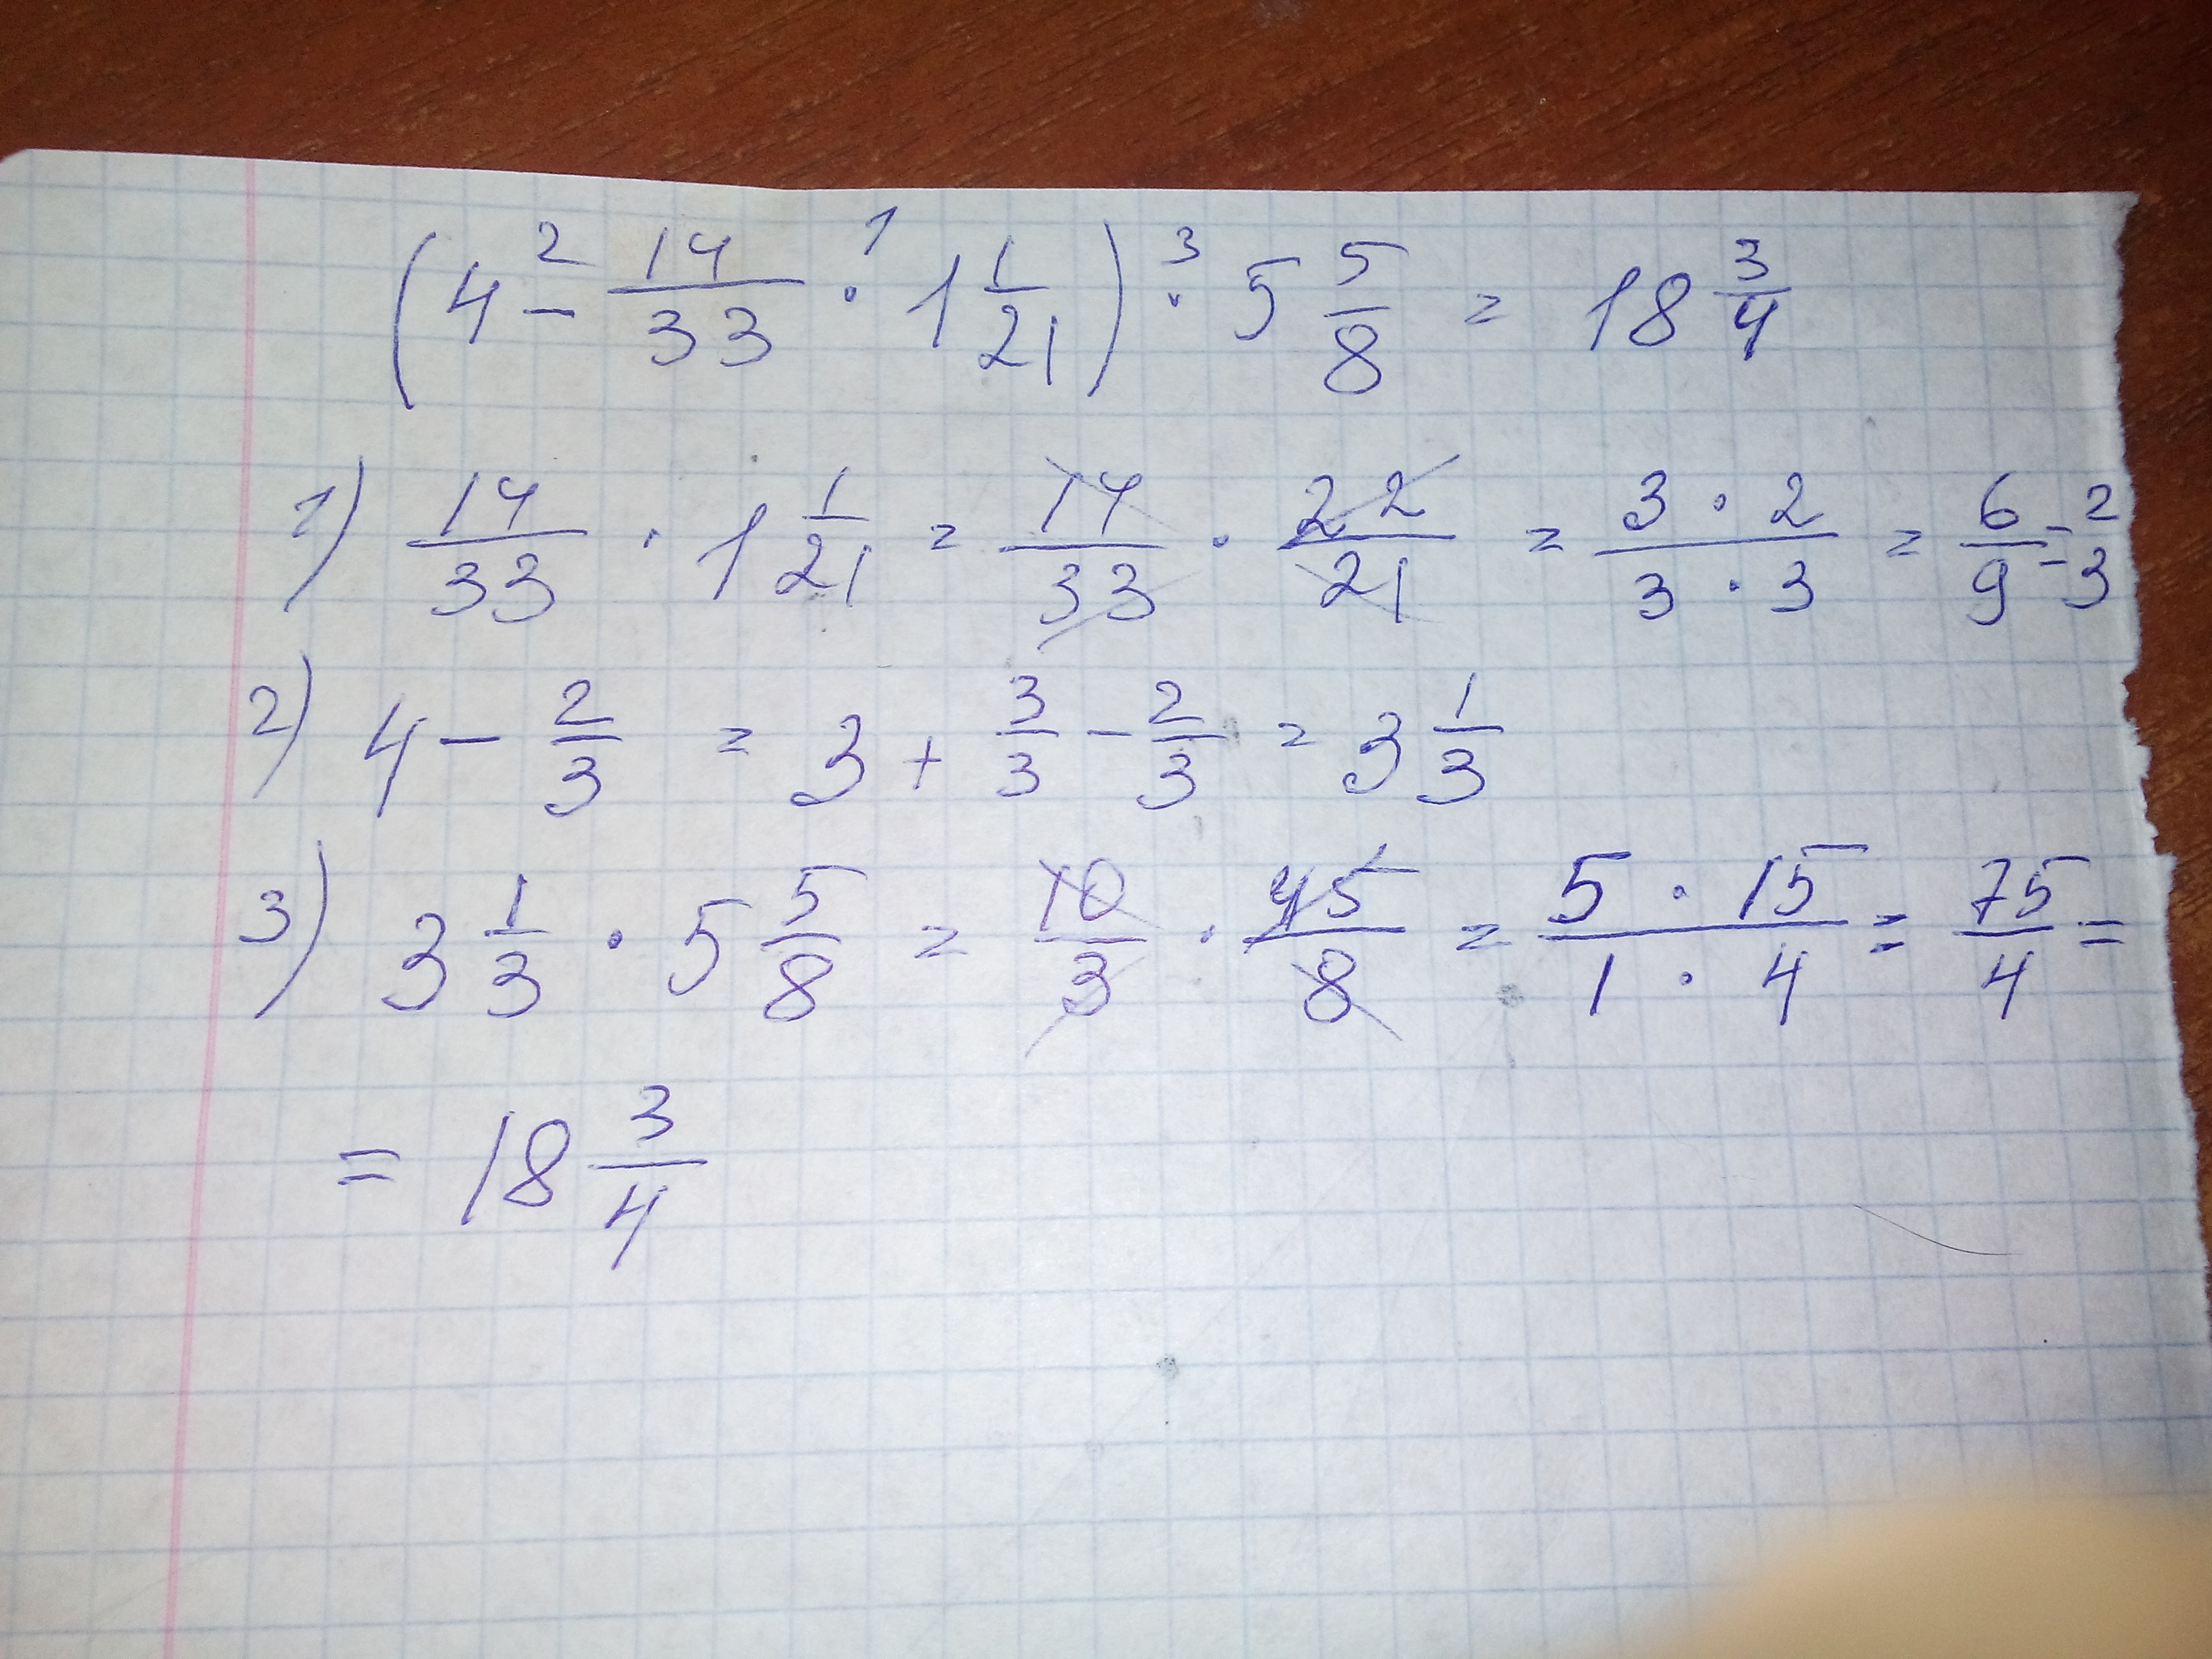 (4 -² 14/33 ·¹ 1 1/21) ·³ 5 5/8 = 18 3/4
1) 14/33 · 1 1/21 = 14/33 · 22/21 = (3 · 2)/(3 · 3) = 6/9 = 2/3
2) 4 - 2/3 = 3 + 3/3 - 2/3 = 3 1/3
3) 3 1/3 · 5 5/8 = 10/3 · 45/8 = (5 · 15)/(1 · 4) = 75/4 =
= 18 3/4